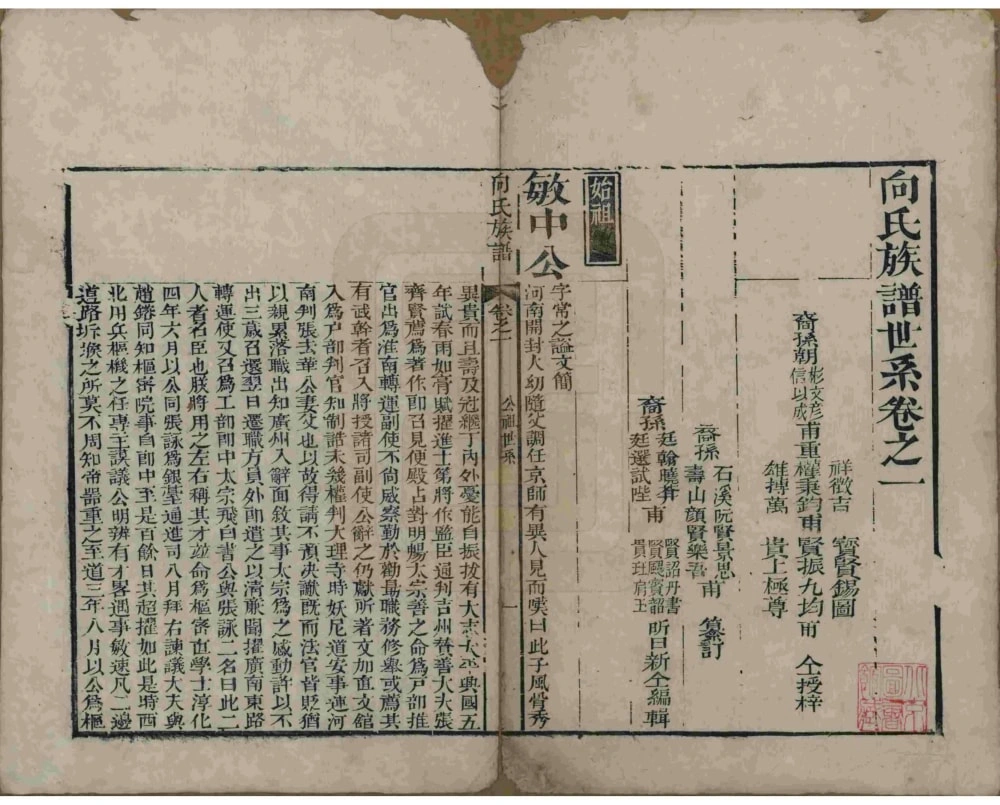 向氏族譜世系卷之一
祥徵吉 寶賢錫圖
裔孫朝 彬文彦 甫重權秉鈞甫賢振九均甫 仝授梓
信以成
雄搏萬 貴上極尊
石溪阮賢景思
裔孫 甫 纂訂
壽山顔賢樂吾
廷翰曉 賢詔丹書
裔孫 甫 賢颺賓韶 昕日新仝編輯
廷選試陞 貴班肩玉
始祖
敏中公
字常之謚文簡
河南開封人幼隨父調任京師有異人見而嘆曰此子風骨秀
向氏族譜 卷之一 公祖世系 一
異貴而且壽及冠繼丁內外憂能自振拔有大志太平興國五
年試春雨如膏賦擢進士第將作監臣通判吉州替善大夫張
齊賢薦爲著作郎召見便殿占對明暢太宗善之命爲戸部推
官出爲淮南轉運副使不尙威察勤於勸勗職務修舉或薦其
有武幹者召入將授諸司副使公辭之仍獻所著文加直文館
入爲戸部判官知制誥未幾權判大理寺時妖尼道安事連河
南判張去華公妻父也以故得請不預决讞既而法官皆貶猶
以親累落職出知廣州入辭面敘其事太宗爲之感動許以不
出三歲召還翌日遷職方員外郎遣之以清亷聞擢廣南東路
轉運使又召爲工部郎中太宗飛白書公與張詠二名曰此二
人者名臣也朕將用之左右稱其才並命爲樞宻直學士淳化
四年六月以公同張詠爲銀臺通進司八月拜右諫議大夫與
趙鎔同知樞宻院事自郎中至是百餘日其超擢如此是時西
北用兵樞機之任專主謀議公明辨有才畧遇事敏速凡二邊
道路斥堠之所莫不周知帝器重之至道三年八月以公爲樞